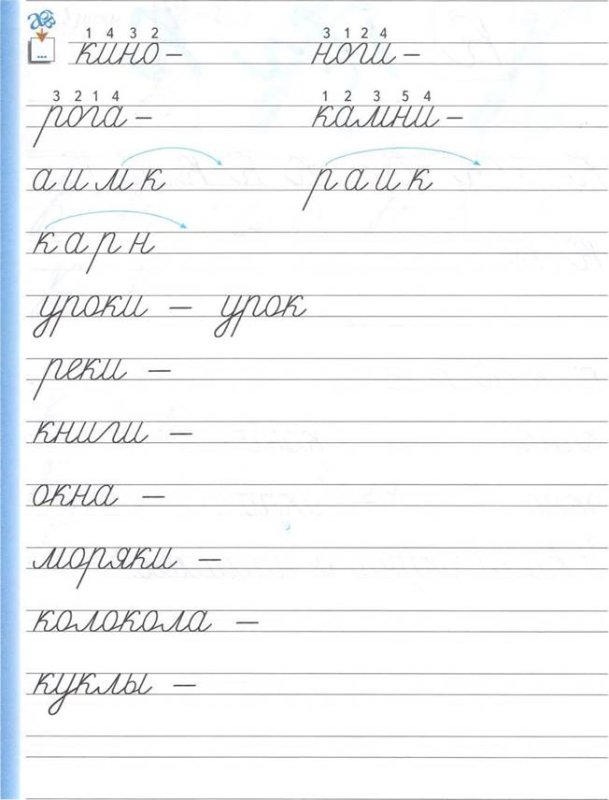 1 4 3 2 3 1 2 4
кино – ноги –
3 2 1 4 1 2 3 5 4
рога – камни –
а и м к р а и к
к а р н
уроки – урок
реки –
книги –
окна –
моряки –
колокола –
куклы –